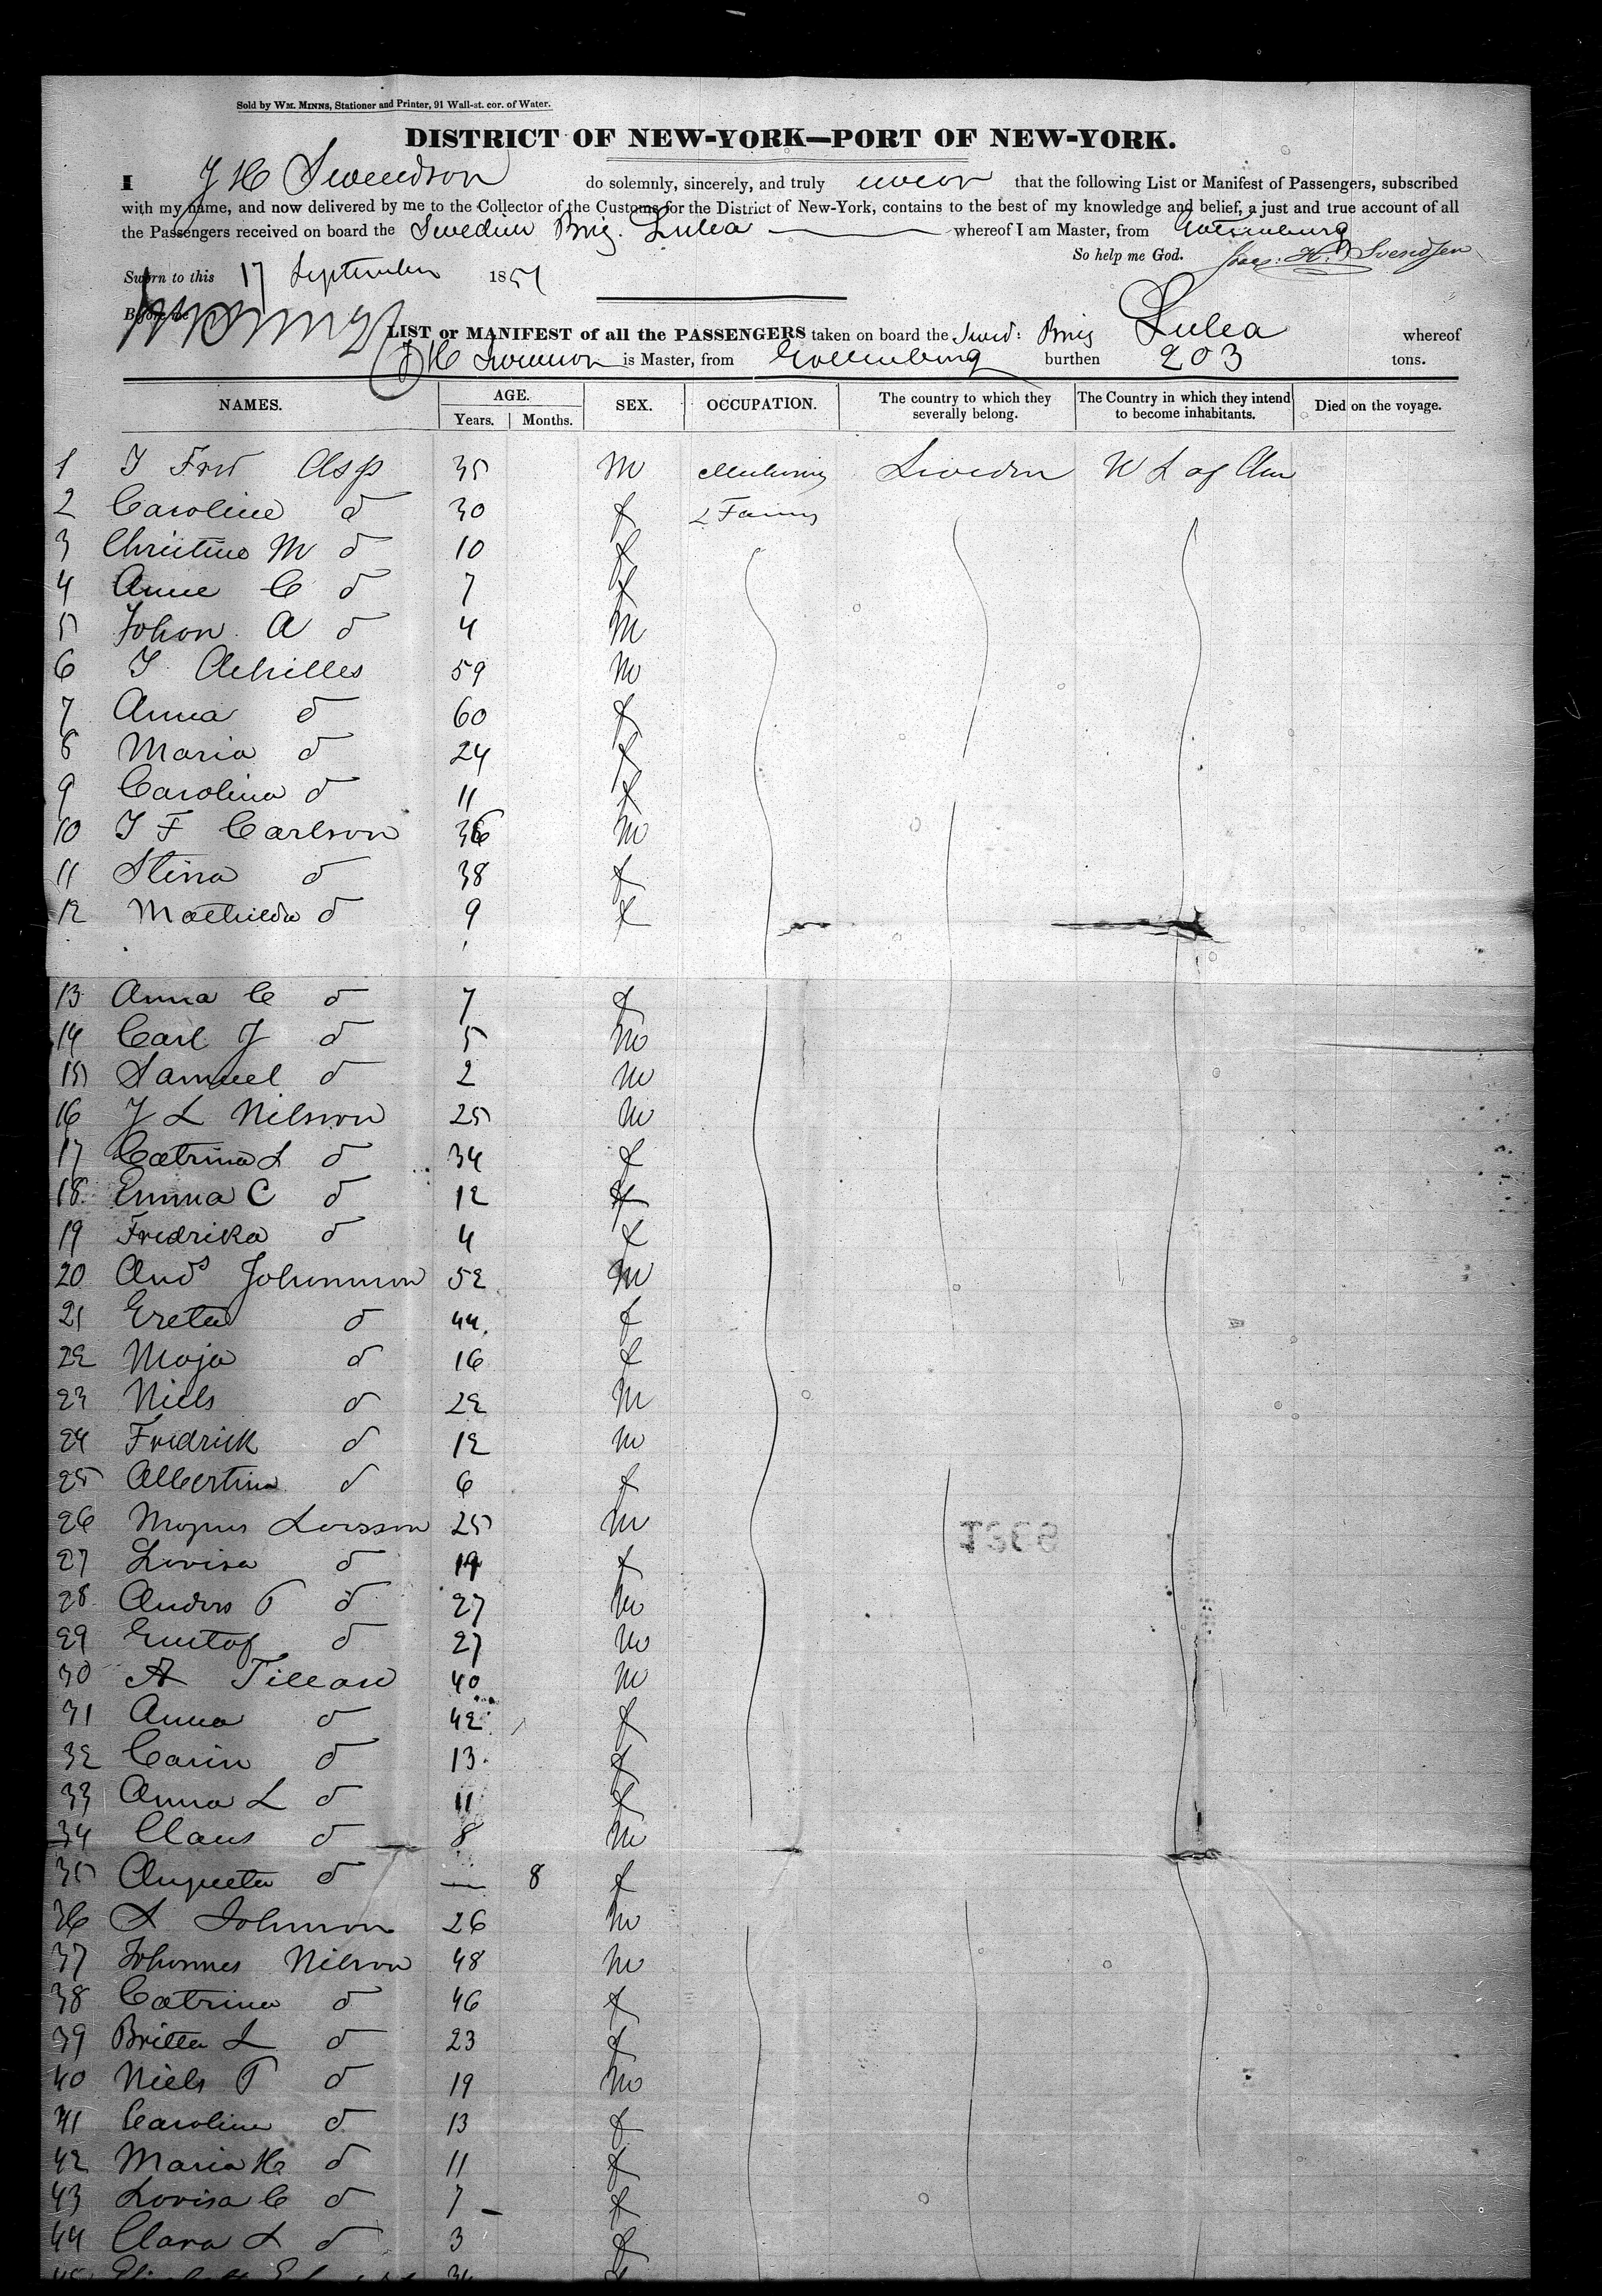 Sold by WM. MINNS, Stationer and Printer, 91 Wall-st. cor. of Water.
DISTRICT OF NEW-YORK—PORT OF NEW-YORK.
I J H Swendson do solemnly, sincerely, and truly swear that the following List or Manifest of Passengers, subscribed
with my name, and now delivered by me to the Collector of the Customs for the District of New-York, contains to the best of my knowledge and belief, a just and true account of all
the Passengers received on board the Swedish Brig. Lulea whereof I am Master, from Gottenburg
So help me God. H. Svendsen
Sworn to this 17 September 1851
Before me
LIST or MANIFEST of all the PASSENGERS taken on board the Swed: Brig Lulea whereof
J H is Master, from Gottenburg burthen 203 tons.
NAMES. AGE. SEX. OCCUPATION. The country to which they severally belong. The Country in which they intend to become inhabitants. Died on the voyage.
Years. Months.
1 J Fred Asp 35 M Sweden U S of Am
2 Caroline d 30 f & Family
3 Christine M d 10 f
4 Anne C d 7 f
5 Johan A d 4 M
6 J Achilles 59 M
7 Anna d 60 f
8 Maria d 24 f
9 Carolina d 11 f
10 J F Carlson 36 M
11 Stina d 38 f
12 Mathilda d 9 f
13 Anna C d 7 f
14 Carl J d 5 M
15 Samuel d 2 M
16 J L Nilsson 25 M
17 Catrina L d 34 f
18 Emma C d 12 f
19 Fredrika d 4 f
20 Ands Johansson 52 M
21 Greta d 44 f
22 Maja d 16 f
23 Niels d 22 M
24 Fredrick d 12 M
25 Albertina d 6 f
26 Magnus Larsson 25 M
27 Lovisa d 19 f
28 Anders P d 27 M
29 Gustaf d 27 M
30 A 40 M
31 Anna d 42 f
32 Carin d 13 f
33 Anna L d 11 f
34 Claus d 8 M
35 Augusta d — 8 f
36 S Johnson 26 M
37 Johannes Nilson 48 M
38 Catrina d 46 f
39 Britta L d 23 f
40 Niels P d 19 M
41 Carolina d 13 f
42 Maria H d 11 f
43 Lovisa C d 7 f
44 Clara S d 3 f